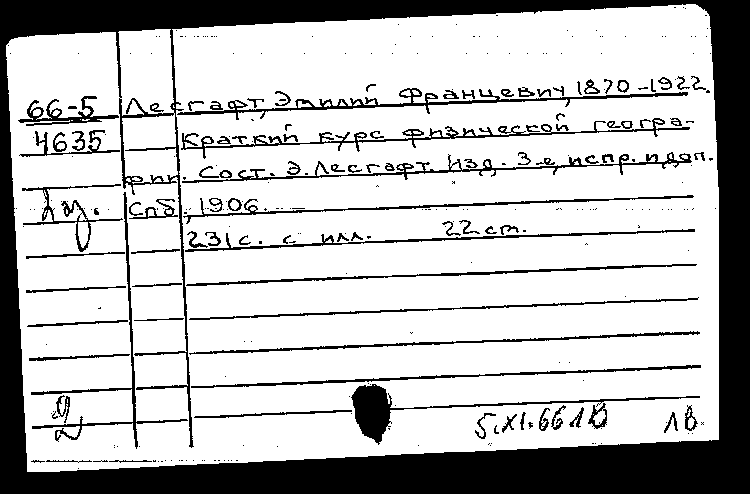 66-5 Лесгафт, Эмилий Францевич, 1870-1922.
4635 Краткий курс физической геогра-
фии. Сост. Э. Лесгафт. Изд. 3-е, испр. и доп.
Спб, 1906.
231 с. с илл. 22 cm.
5.XI.66 1В 1В.